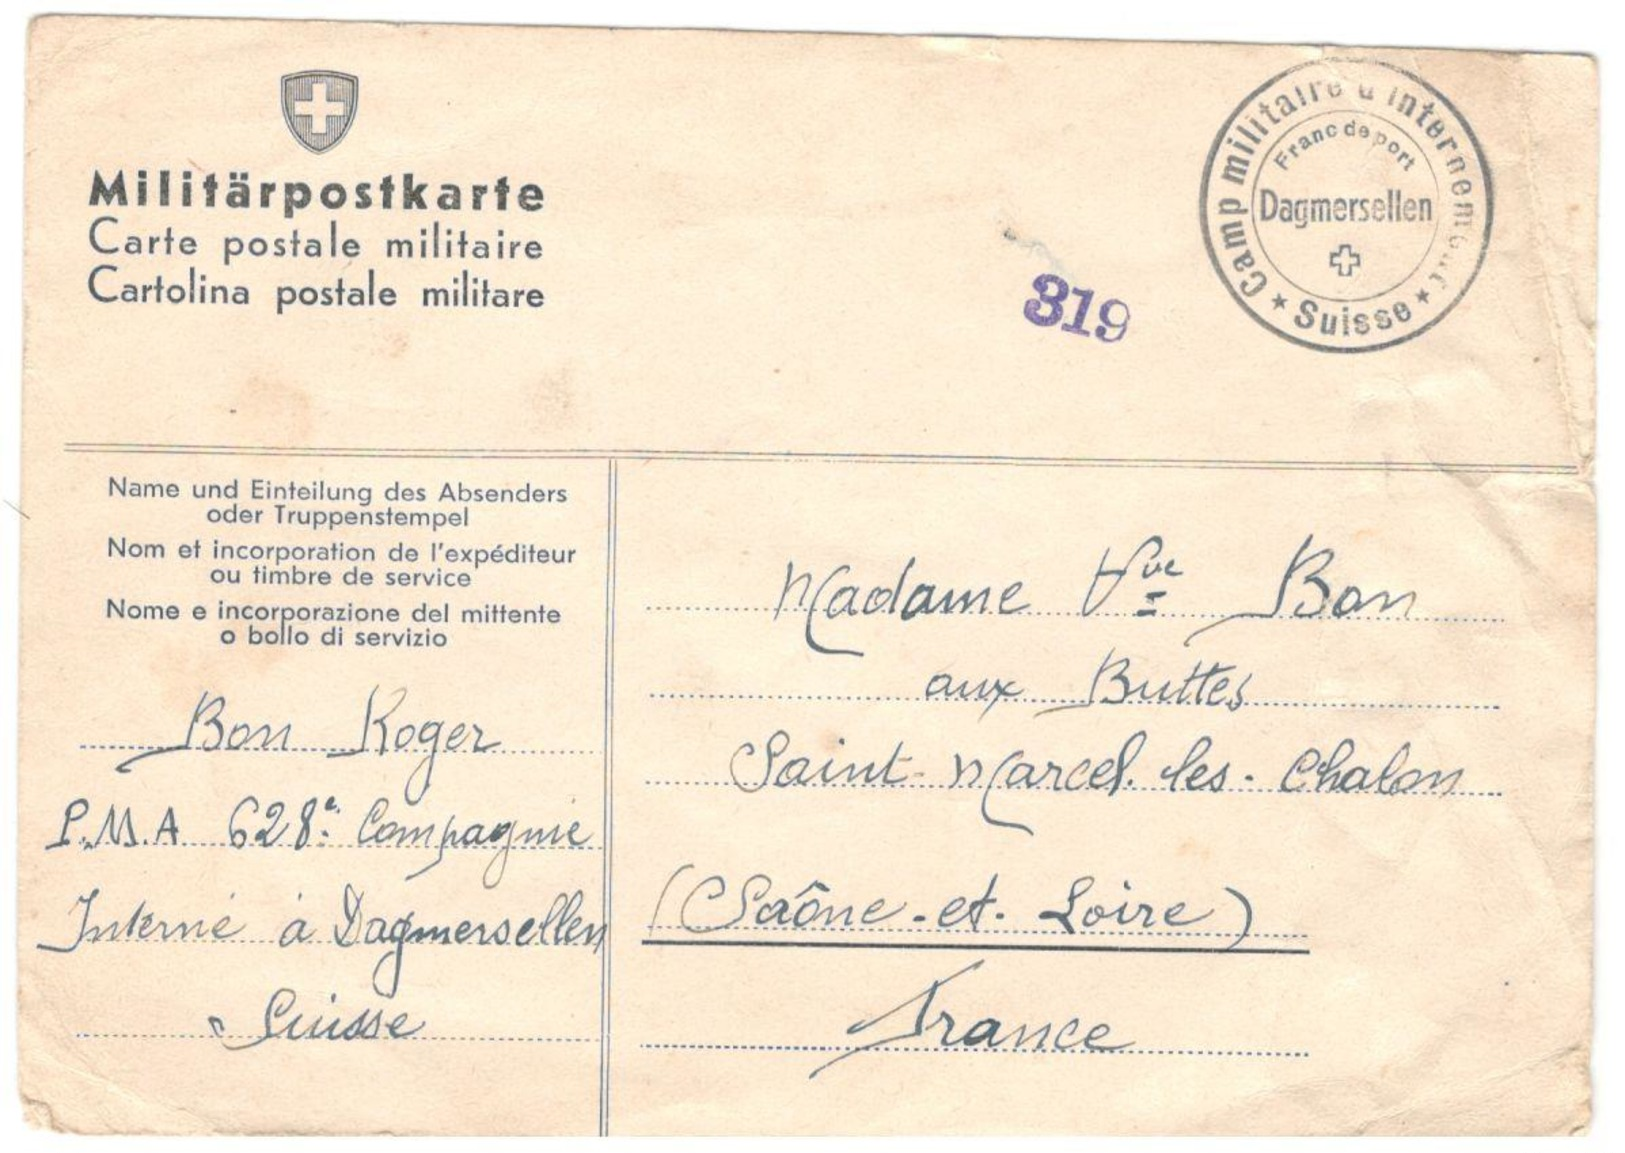 Militärpostkarte
Carte postale militaire
Cartolina postale militare
319
Camp militaire d'internement
Franc de port
Dagmersellen
Suisse
Name und Einteilung des Absenders
oder Truppenstempel
Nom et incorporation de l'expéditeur
ou timbre de service
Nome e incorporazione del mittente
o bollo di servizio
Bon Roger
P.M.A 628e Compagnie
Interné à Dagmersellen
Suisse
Madame Vve Bon
aux Buttes
Saint-Marcel-les-Chalon
(Saône-et-Loire)
France